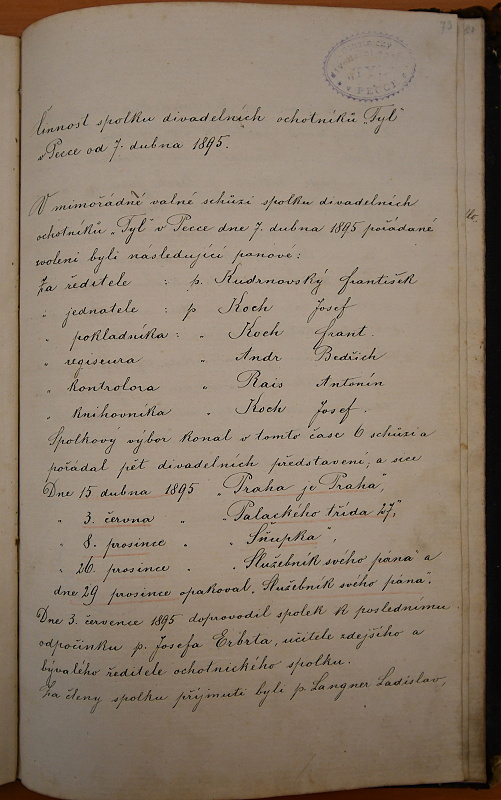 73
TYL
PECCE
Činnost spolku divadelních ochotníků „Tyl"
v Pecce od 7. dubna 1895.
V mimořádné valné schůzi spolku divadelních
ochotníků „Tyl" v Pecce dne 7. dubna 1895 pořádané
zvoleni byli následující pánové:
Za ředitele : p. Kudrnovský František
„ jednatele : p Koch Josef
„ pokladníka : „ Koch Frant.
„ regiseura „ Andr Bedřich
„ kontrolora „ Rais Antonín
„ knihovníka „ Koch Josef.
Spolkový výbor konal v tomto čase 6 schůzí a
pořádal pět divadelních představení, a sice
Dne 15 dubna 1895 „Praha je Praha",
„ 3. června „ „Palackého třída 27",
„ 8. prosince „ „Šňupka",
„ 26. prosince „ „Služebník svého pána" a
dne 29 prosince opakoval „Služebník svého pána".
Dne 3. července 1895 doprovodil spolek k poslednímu
odpočinku p. Josefa Erbrta, učitele zdejšího a
bývalého ředitele ochotnického spolku.
Za členy spolku přijmuti byli p. Langner Ladislav,